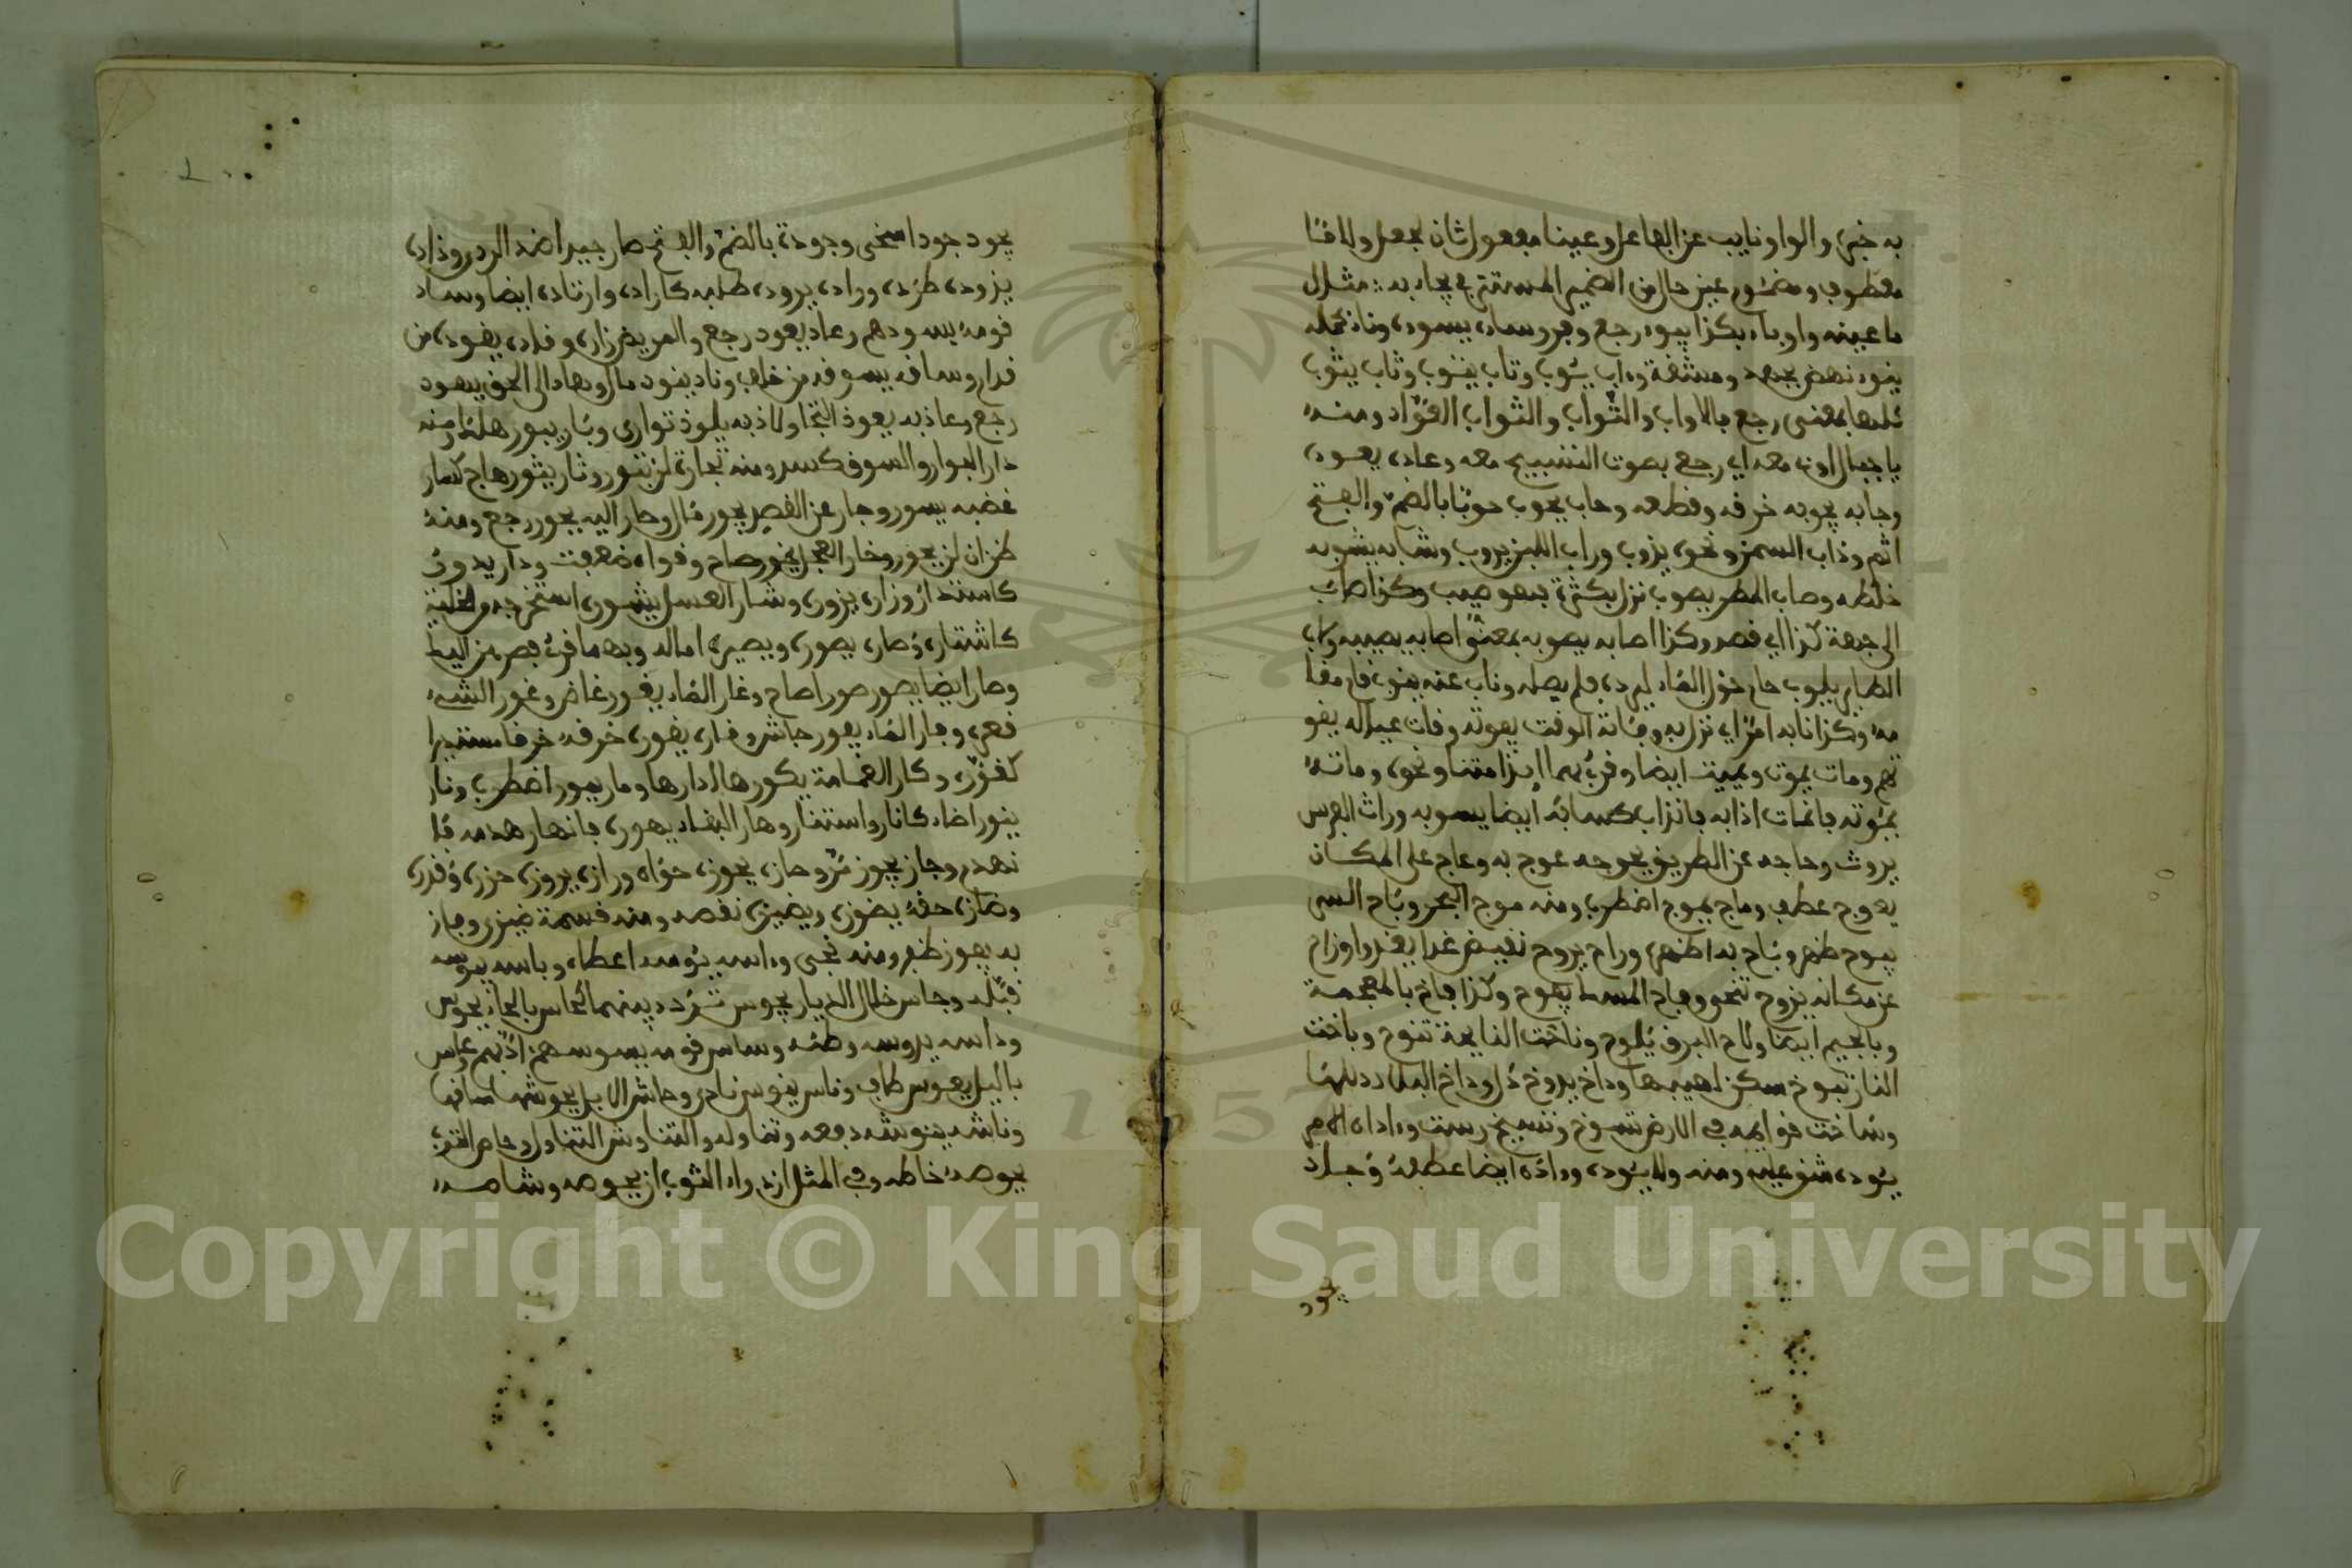 به خبره والواو نايب عن الفاعل وعينا مفعول ثان لجعل ولاما
معطوف ومضموم عين حال من الضمير المستتر في يجاء به : مثال
ما عينه واو باء بكذا يبوء رجع وقر وساءه يسوءه وناء بحمله
ينوء نهض بجهد ومشقة وءاب يئوب وتاب يتوب وثاب يثوب
كلها بمعنى رجع بالاواب والتواب والثواب العواد ومنه
يا جبال اوبي معه اي رجع بصوت التسبيح معه وعاده يعوده
وجابه يجوبه خرقه وقطعه وحاب يحوب حوبا بالضم والفتح
اثم وذاب السمن ونحوه يذوب وراب اللبن يروب وشابه يشوبه
خلطه وصاب المطر يصوب نزل بكثرة فهو صيب وكذا صاب
الى جهة كذا اي قصد وكذا اصابه يصوبه بمعنى اصابه يصيبه ولاب
الطير يلوب حام حول الماء ليرده فلم يصله وناب عنه ينوب قام مقا
مه وكذا نابه امر اي نزل به وفاته الوقت يفوته وقات عياله يقو
تهم ومات يموت ويميت ايضا وقرئ بهما ائذا متنا ونحوه وماثه
يموثه فانماث اذابه فانذاب كسابه ايضا يسوبه وراث الفرس
يروث وعاجه عن الطريق يعوجه عوج به وعاج على المكان
يعوج عطف وماج يموج اضطرب ومنه موج البحر وباح السر
يبوح ظهر وباح به اظهره وراح يروح نقيض غدا يغدوا وزاح
عن مكانه يزوح تنحى وفاح المسك يفوح وكذا فاخ بالمعجمة
وبالجيم ايضا ولاح البرق يلوح وناحت النايحة تنوح وباخت
النار تبوخ سكن لهيبها وداخ يدوخ ذل وداخ البلاد ذللها
وساخت قوايمه في الارض تسوخ وتسيخ رست وءاداه الامر
يئوده شق عليه ومنه ولا يئوده وءاده ايضا عطفه وجاد
يجود
يجود جودا سخى وجودة بالضم والفتح صار جيدا ضد الردي وذاده
يذوده طرده وراده يروده طلبه كاراده وارتاده ايضا وساد
قومه يسودهم وعاد يعود رجع والمريض زاره وقاده يقوده من
قدام وساقه يسوقه من خلف وناد ينود مال وهاد الى الحق يهود
رجع وعاذ به يعوذ التجا ولاذ به يلوذ توارى وبار يبور هلك ومنه
دار البوار والسوق كسد ومنه تجارة لن تبور وثار يثور هاج كسار
غضبه يسور وجار عن القصد يجور مال وحار اليه يحور رجع ومنه
ظن ان لن يحور وخار العجل يخور صاح وقواه ضعفت ودار يدور
كاستدار وزاره يزوره وشار العسل يشوره استخرجه من الخلية
كاشتاره وصاره يصوره ويصيره اماله وبهما قرئ فصرهن اليك
وصار ايضا يصور صورا صاح وغار الماء يغور غاض وغور الشيء
قعره وفار الماء يفور جاش وقاره يقوره خرقه خرقا مستديرا
كقوره وكار العمامة يكورها ادارها ومار يمور اضطرب ونار
ينور اضاء كانار واستنار وهار البناء يهوره فانهار هدمه فا
نهدم وجاز يجوز مر وحازه يحوزه حواه ورازه يروزه حزره وقدره
وضازه حقه يضوزه ويضيزه نقصه ومنه قسمة ضيزى وفاز
به يفوز ظفر ومنه نجى وءاسه يئوسه اعطاه وباسه يبوسه
قبله وجاس خلال الديار يجوس تردد بينهما كحاس بالحاء يحوس
وداسه يدوسه وطئه وساس قومه يسوسهم ادبهم وعاس
باليل يعوس طاف وناس ينوس تدلى وحاش الابل يحوشها ساقها
وناشه ينوشه دفعه وتناوله والتناوش التناول وحاص الثوب
يحوصه خاطه وفي المثل ان دواء الثوب ان يحوصه وشاصه
Copyright © King Saud University
1957